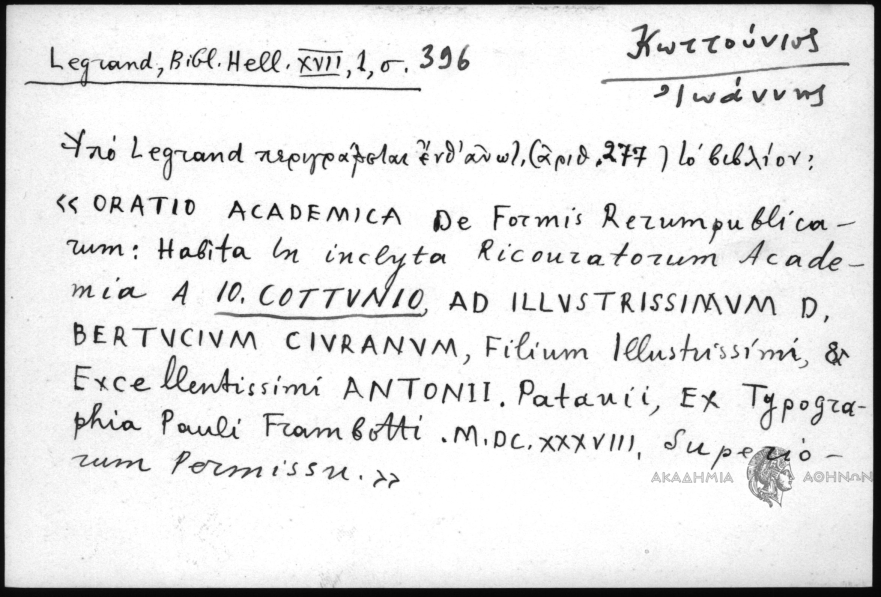 Legrand, Bibl. Hell. XVII, 1, σ. 396
Κωττούνιος
Ἰωάννης
Ὑπό Legrand περιγράφεται ἔνθ' ἀνωτ. (ἀριθ. 277) τό βιβλίον:
«ORATIO ACADEMICA De Formis Rerumpublica-
rum: Habita In inclyta Ricouratorum Acade-
mia A IO. COTTVNIO, AD ILLVSTRISSIMVM D,
BERTVCIVM CIVRANVM, Filium Illustrissimi, &
Excellentissimi ANTONII. Patauii, Ex Typogra-
phia Pauli Frambotti. M.DC.XXXVIII. Superio-
rum Permissu.»
ΑΚΑΔΗΜΙΑ ΑΘΗΝΩΝ